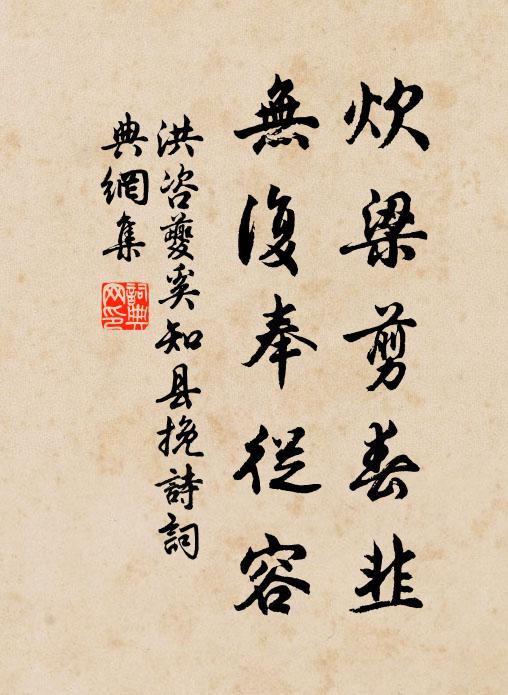 炊梁剪春韭
無復奉從容
洪咨夔奚知县挽詩詞
典網集
詞典网印